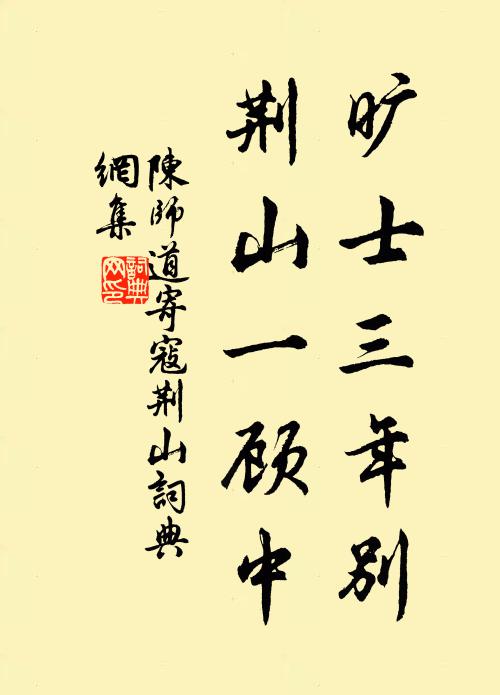 旷士三年别
荆山一顾中
陳師道寄寇荆山詞典
網集
詞典
网印